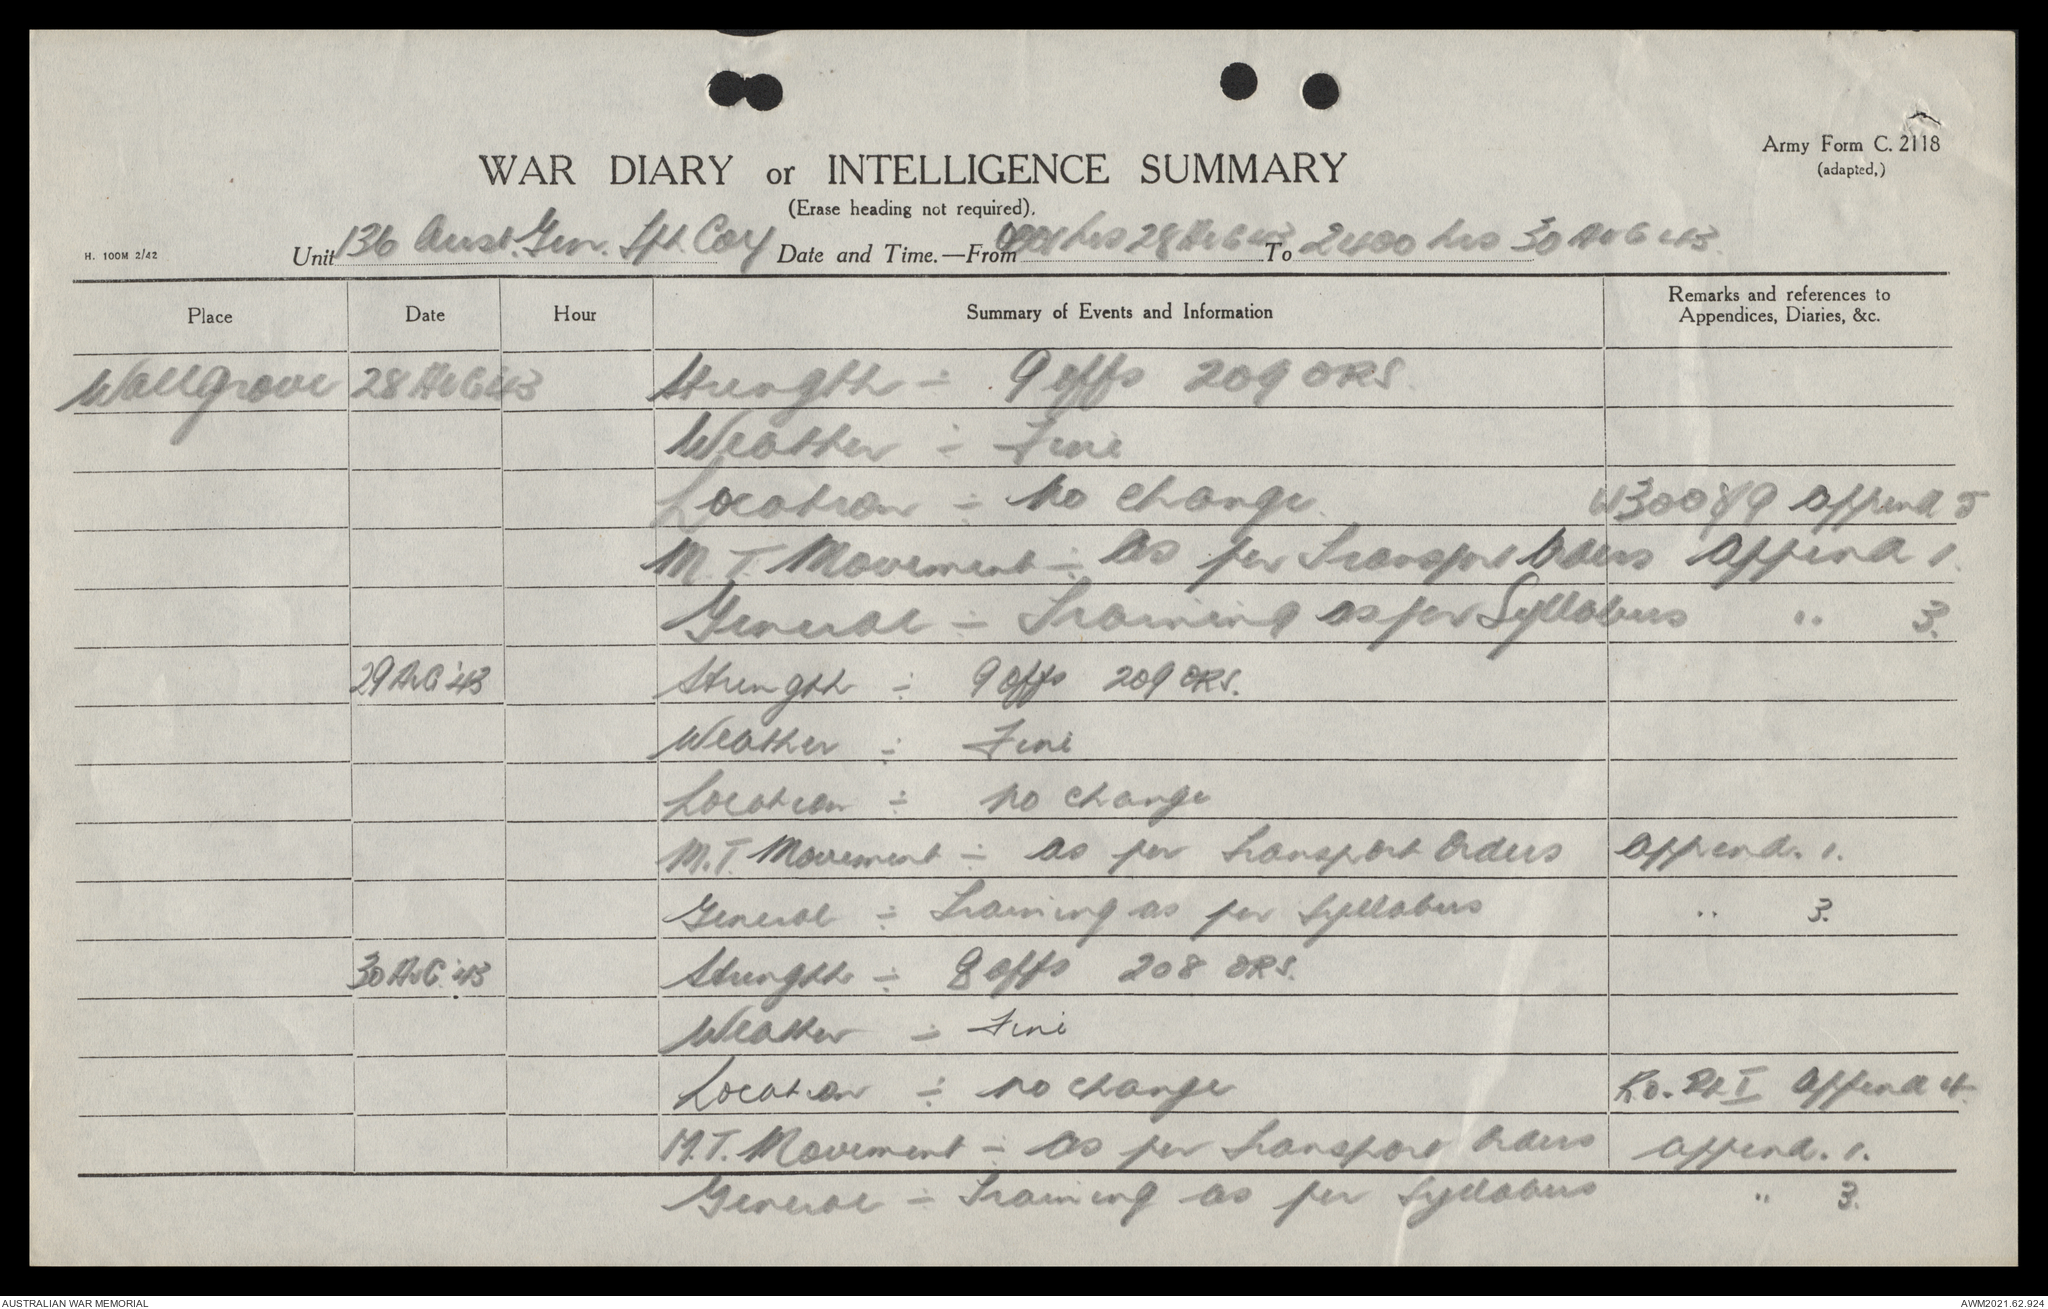 Army Form C. 2118
(adapted,)
WAR DIARY or INTELLIGENCE SUMMARY
(Erase heading not required).
H. 100M 2/42
Unit 136 Aust. Gen. Tpt. Coy Date and Time.—From 0001 hrs 28 AUG 43 To 2400 hrs 30 AUG 43.
Place Date Hour Summary of Events and Information Remarks and references to Appendices, Diaries, &c.
Wallgrove 28 AUG 43 Strength ÷ 9 offs 209 ORS.
Weather ÷ Fine
Location ÷ no change. Append 5
M.T. Movement ÷ as per Transport Orders Append 1.
General ÷ Training as per Syllabus " 3.
29 AUG '43 Strength ÷ 9 offs 209 ORS.
Weather ÷ Fine
Location ÷ no change
M.T. Movement ÷ as per Transport Orders Append. 1.
General ÷ Training as per Syllabus " 3.
30 AUG. '43 Strength ÷ 8 offs 208 ORS.
Weather ÷ Fine
Location ÷ no change R.O. Pt I Append 4.
M.T. Movement ÷ as per Transport Orders append. 1.
General ÷ Training as per Syllabus " 3.
AUSTRALIAN WAR MEMORIAL
AWM2021.62.924